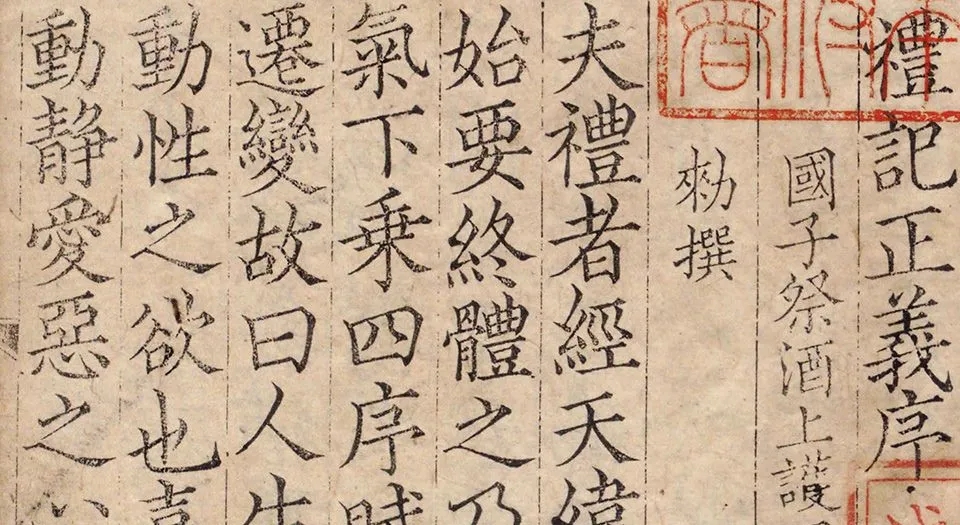 禮記正義序
國子祭酒上護
勑撰
夫禮者經天緯
始要終體之乃
氣下乗四序賦
遷變故曰人生
動性之欲也喜
動静愛惡之心